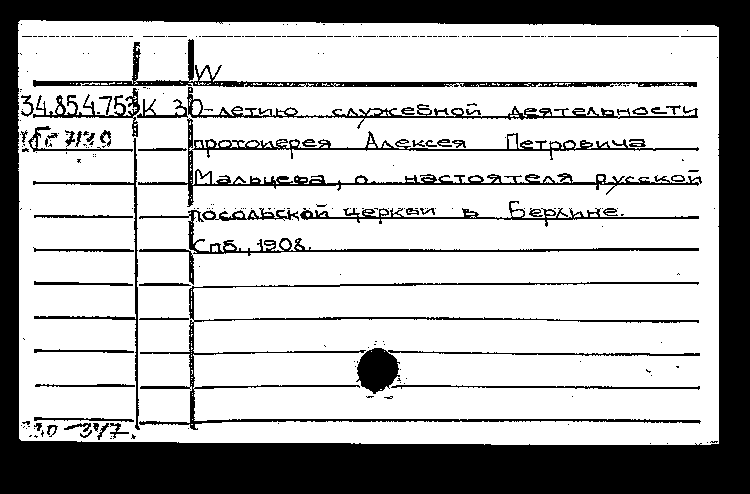 W
34.85.4.753 К 30-летию служебной деятельности
протоиерея Алексея Петровича
Мальцева, о. настоятеля русской
посольской церкви в Берлине.
Спб., 1908.